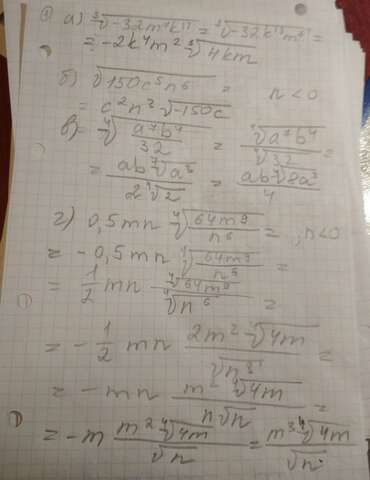 ① а) ∛-32m⁷k¹³ = ∛-32k¹³m⁷ =
= -2k⁴m² ∛4km
б) √-150c⁵n⁶ = n<0
= c²n³√-150c
в) = ⁴√a⁷b⁴/32 = ⁴√a⁷b⁴/⁴√32 =
= ab⁴√a³/2⁴√2 = ab⁴√8a³/4
г) 0,5mn ⁴√64m⁹/n⁶ = , n<0
= -0,5mn ⁴√64m⁹/n⁶ =
= 1/2 mn - ⁴√64m⁹/⁴√n⁶ =
= -1/2 mn 2m² ⁴√4m/√n³ =
= -mn m² ⁴√4m/n√n =
= -m m² ⁴√4m/√n = m³ ⁴√4m/√n